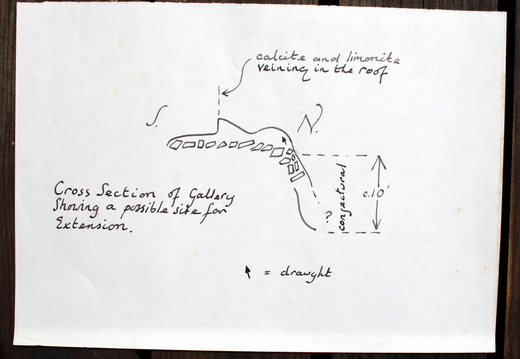 calcite and limonite
veining in the roof
S.
N.
Cross Section of Gallery
Showing a possible site for
Extension.
?
conjectural
c.10'
= draught